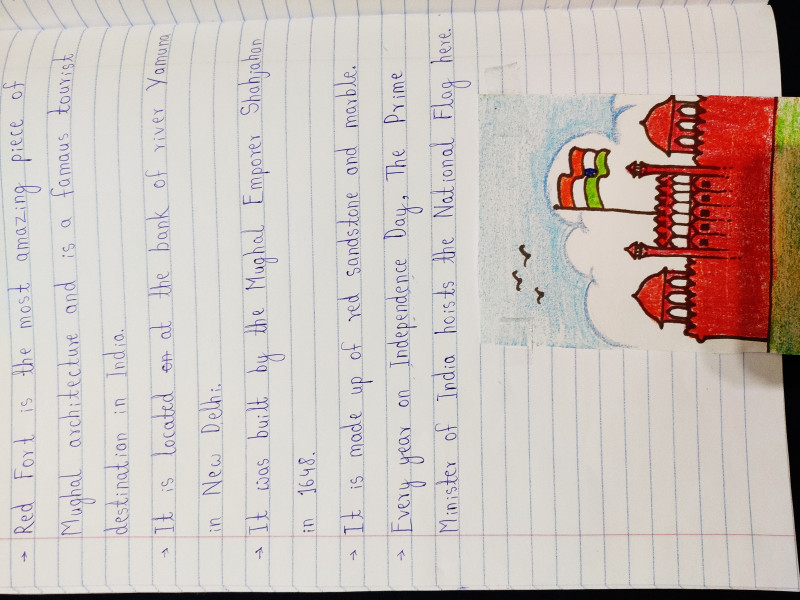 → Red Fort is the most amazing piece of
Mughal architecture and is a famaus tourist
destination in India.
→ It is located on at the bank of river Yamuna
in New Delhi.
→ It was built by the Mughal Emporer Shahjahan
in 1648.
→ It is made up of red sandstone and marble.
→ Every year on Independence Day, The Prime
Minister of India hoists the National Flag here.